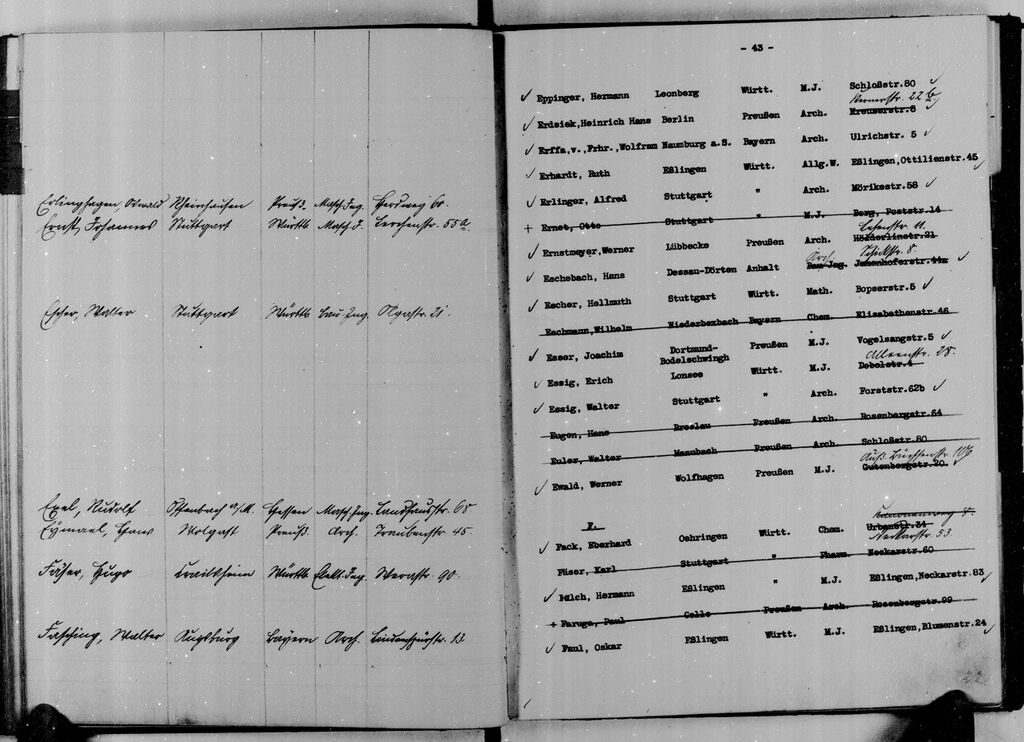 Erlinghagen, Oswald Rheinhausen Preuß. Masch.Ing. Herdweg 60.
Ernst Johannes Stuttgart Württb. Masch.J. Lerchenstr. 55a
Escher, Walter Stuttgart Württb. Bau-Ing. Olgastr. 21.
Exel, Rudolf Offenbach a/M. Hessen Masch.Ing. Landhausstr. 68
Eymael, Hans Wolgast Preuß. Arch. Traubenstr. 45.
Fäser, Hugo Crailsheim Württb. Elekt.Ing. Werastr. 90.
Fasching, Walter Augsburg Bayern Arch. Lindenspürstr. 13.
- 43 -
✓ Eppinger, Hermann Leonberg Württ. M.J. Schloßstr.80 ✓
Kernerstr. 22 b
✓ Erdsiek,Heinrich Hans Berlin Preußen Arch. Kreuserstr.6
✓ Erffa,v.,Frhr.,Wolfram Naumburg a.S. Bayern Arch. Ulrichstr. 5 ✓
✓ Erhardt, Ruth Eßlingen Württ. Allg.W. Eßlingen,Ottilienstr.45 ✓
✓ Erlinger, Alfred Stuttgart " Arch. Mörikestr.58 ✓
+ Ernst, Otto Stuttgart " M.J. Berg, Poststr.14
✓ Ernstmeyer,Werner Lübbecke Preußen Arch. Hölderlinstr.21
Arch. Schickstr. 8.
✓ Eschebach, Hans Dessau-Dörten Anhalt Bau-Jng. Jamenhoferstr.44a ✓
✓ Escher, Hellmuth Stuttgart Württ. Math. Bopserstr.5 ✓
Eschmann,Wilhelm Niederbexbach Bayern Chem. Elisabethenstr.46
✓ Esser, Joachim Dortmund-Bodelschwingh Preußen M.J. Vogelsangstr.5 ✓
Alleenstr. 28.
✓ Essig, Erich Lonsee Württ. M.J. Dobelstr.
✓ Essig, Walter Stuttgart " Arch. Forststr.62b ✓
Eugen, Hans Breslau Preußen Arch. Rosenbergstr.64
Euler, Walter Manubach Preußen Arch. Schloßstr.80
✓ Ewald, Werner Wolfhagen Preußen M.J. Gutenbergstr.20. ✓
F.
✓ Fack, Eberhard Oehringen Württ. Chem. Urbanstr.31
Neckarstr. 53
Fäser, Karl Stuttgart " Pharm. Neckarstr.60
✓ Falch, Hermann Eßlingen " M.J. Eßlingen,Neckarstr.83 ✓
+ Faruga, Paul Celle Preußen Arch. Rosenbergstr.99
✓ Faul, Oskar Eßlingen Württ. M.J. Eßlingen,Blumenstr.24 ✓
22